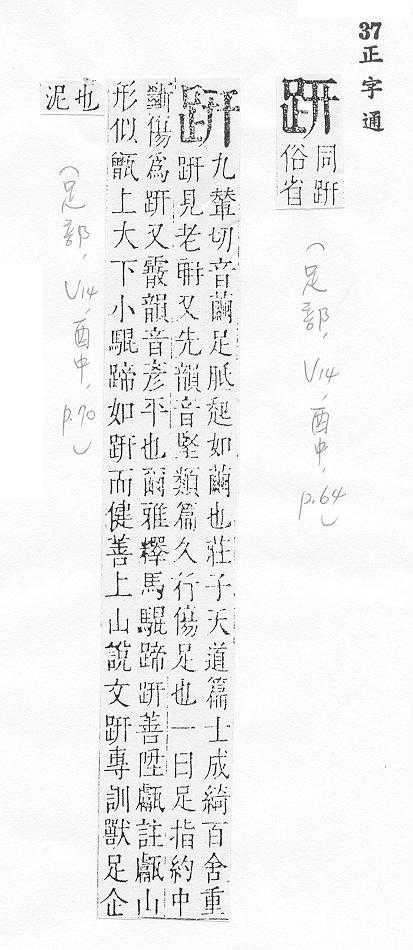 37正字通
趼
同趼
俗省
（足部，V14，酉中，p.64）
趼
九輦切音繭足胝起如繭也莊子天道篇士成綺百舍重
趼見老聃又先韻音堅類篇久行傷足也一曰足指約中
斷傷為趼又霰韻音彥平也爾雅釋馬騉蹄趼善陞甗註甗山
形似甑上大下小騉蹄如趼而健善上山說文趼專訓獸足企
也
泥
（足部，V14，酉中，p.70）